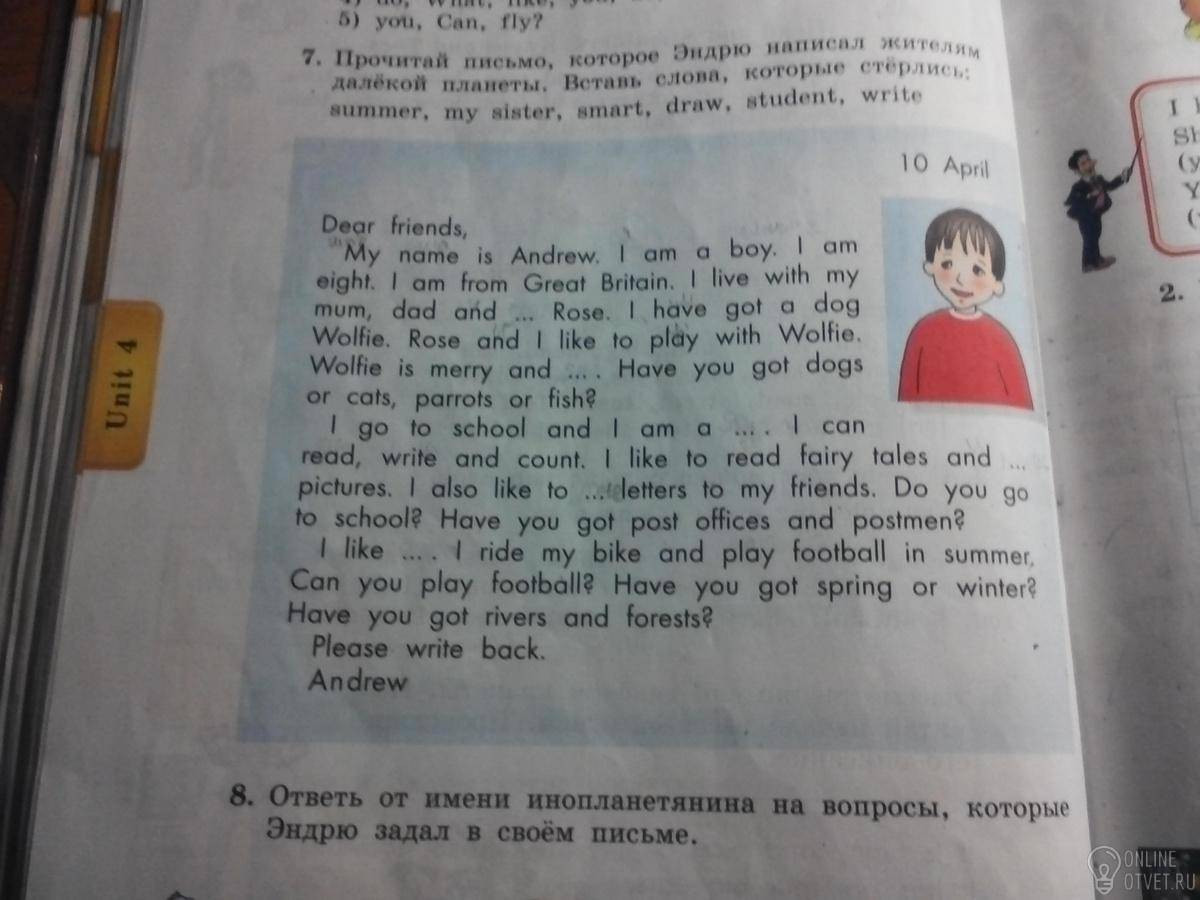 5) you, Can, fly?
7. Прочитай письмо, которое Эндрю написал жителям
далёкой планеты. Вставь слова, которые стёрлись:
summer, my sister, smart, draw, student, write
10 April
Dear friends,
My name is Andrew. I am a boy. I am
eight. I am from Great Britain. I live with my
mum, dad and ... Rose. I have got a dog
Wolfie. Rose and I like to play with Wolfie.
Wolfie is merry and ... . Have you got dogs
or cats, parrots or fish?
I go to school and I am a ... . I can
read, write and count. I like to read fairy tales and ...
pictures. I also like to ... letters to my friends. Do you go
to school? Have you got post offices and postmen?
I like ... . I ride my bike and play football in summer.
Can you play football? Have you got spring or winter?
Have you got rivers and forests?
Please write back.
Andrew
Unit 4
8. Ответь от имени инопланетянина на вопросы, которые
Эндрю задал в своём письме.
2.
ONLINE
OTVET.RU